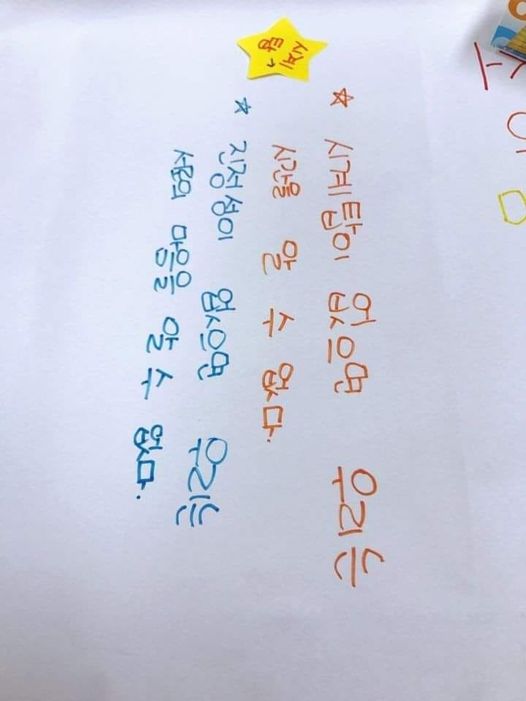 시계
탑
☆ 시계탑이 없으면 우리는
시간을 알 수 없다.
☆ 진정성이 없으면 우리는
서로의 마음을 알 수 없다.